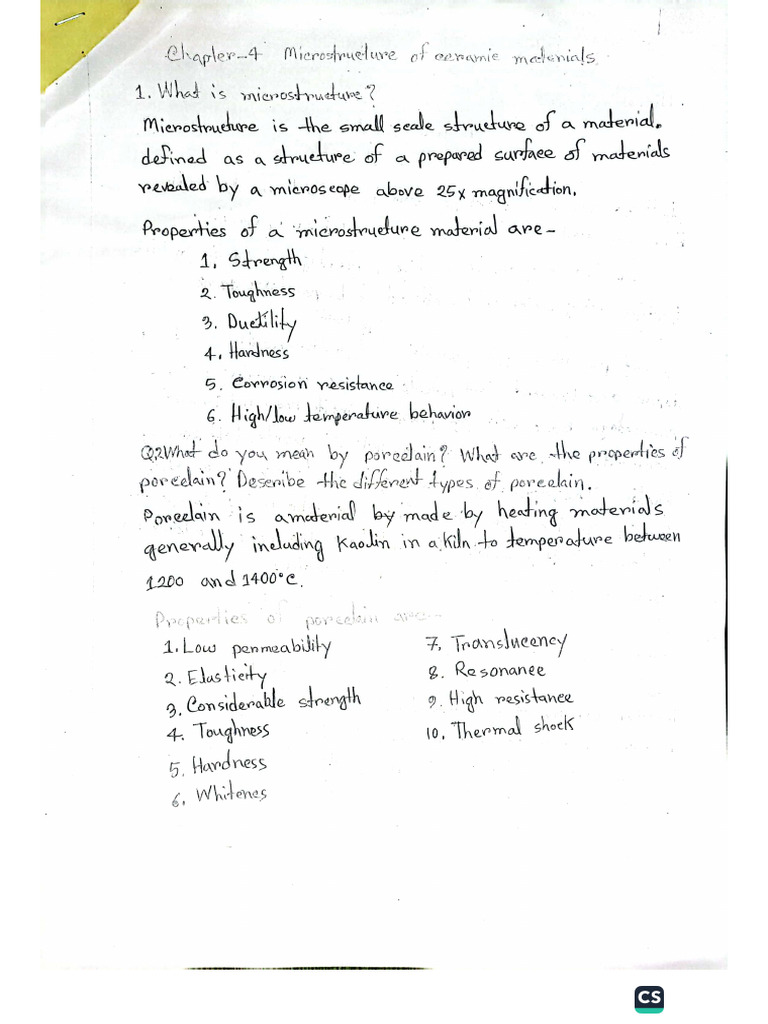 Chapter-4 Microstructure of ceramic materials
1. What is microstructure?
Microstructure is the small scale structure of a material.
defined as a structure of a prepared surface of materials
revealed by a microscope above 25x magnification.
Properties of a microstructure material are-
1. Strength
2. Toughness
3. Ductility
4. Hardness
5. Corrosion resistance
6. High/low temperature behavior
Q.2 What do you mean by porcelain? What are the properties of
porcelain? Describe the different types of porcelain.
Porcelain is a material by made by heating materials
generally including Kaolin in a kiln to temperature between
1200 and 1400°C.
Properties of porcelain are--
1. Low permeability
2. Elasticity
3. Considerable strength
4. Toughness
5. Hardness
6. Whitenes
7. Translucency
8. Resonance
9. High resistance
10. Thermal shock
CS